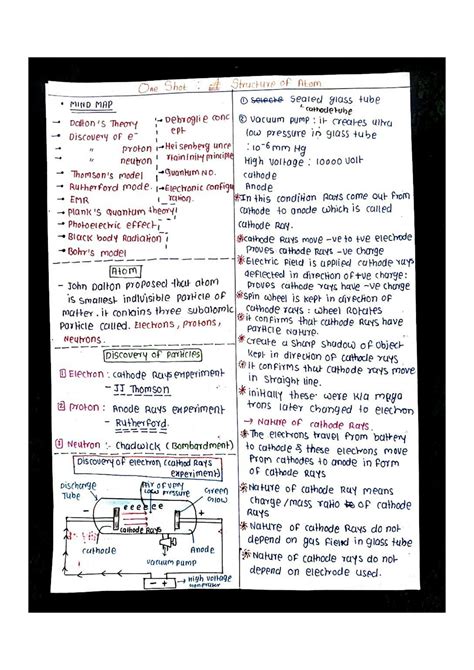 One Shot : Structure of Atom
• MIND MAP
→ Dalton's Theory
→ Discovery of e⁻
→ " proton
→ " neutron
→ Thomson's model
→ Rutherford mode.
→ EMR
→ Plank's quantum theory
→ Photoelectric effect
→ Black body Radiation
→ Bohr's model
→ Debroglie conc
ept.
→ Heisenberg unce
rtainity principle
→ Quantum No.
→ Electronic configu
ration.
Atom
- John Dalton proposed that atom
is smallest indivisible particle of
matter. it contains three subatomic
particle called. Electrons, Protons,
Neutrons.
Discovery of Particles
① Electron : cathode Rays experiment
- JJ Thomson
② Proton : Anode Rays experiment
- Rutherford.
③ Neutron :- Chadwick (Bombardment)
Discovery of electron (cathod Rays
experiment)
Discharge
Tube
Air of very
low pressure
Green
Glow
e e e e e e
cathode Rays
cathode
Anode
vacuum pump
- +
→ High voltage
① Sealed glass tube
cathode tube
② vacuum pump : it creates ultra
low pressure in glass tube
: 10⁻⁶ mm Hg
High voltage : 10000 volt
cathode
Anode
* In this condition Rays come out from
cathode to anode which is called
cathode Ray.
* cathode Rays move -ve to +ve electrode
proves cathode Rays -ve charge
* Electric field is applied cathode rays
deflected in direction of +ve charge:
proves cathode Rays have -ve charge
* spin wheel is kept in direction of
cathode rays : wheel Rotates
* it confirms that cathode Rays have
particle nature.
* create a sharp shadow of object
kept in direction of cathode Rays
* it confirms that cathode Rays move
in straight line.
* initially these were k/a
trons later changed to electron
→ Nature of cathode Rays.
* The electrons travel from battery
to cathode & these electrons move
from cathodes to anode in form
of cathode Rays.
* Nature of cathode Ray means
charge/mass ratio of cathode
Rays
* Nature of cathode Rays do not
depend on gas filled in glass tube
* Nature of cathode rays do not
depend on electrode used.